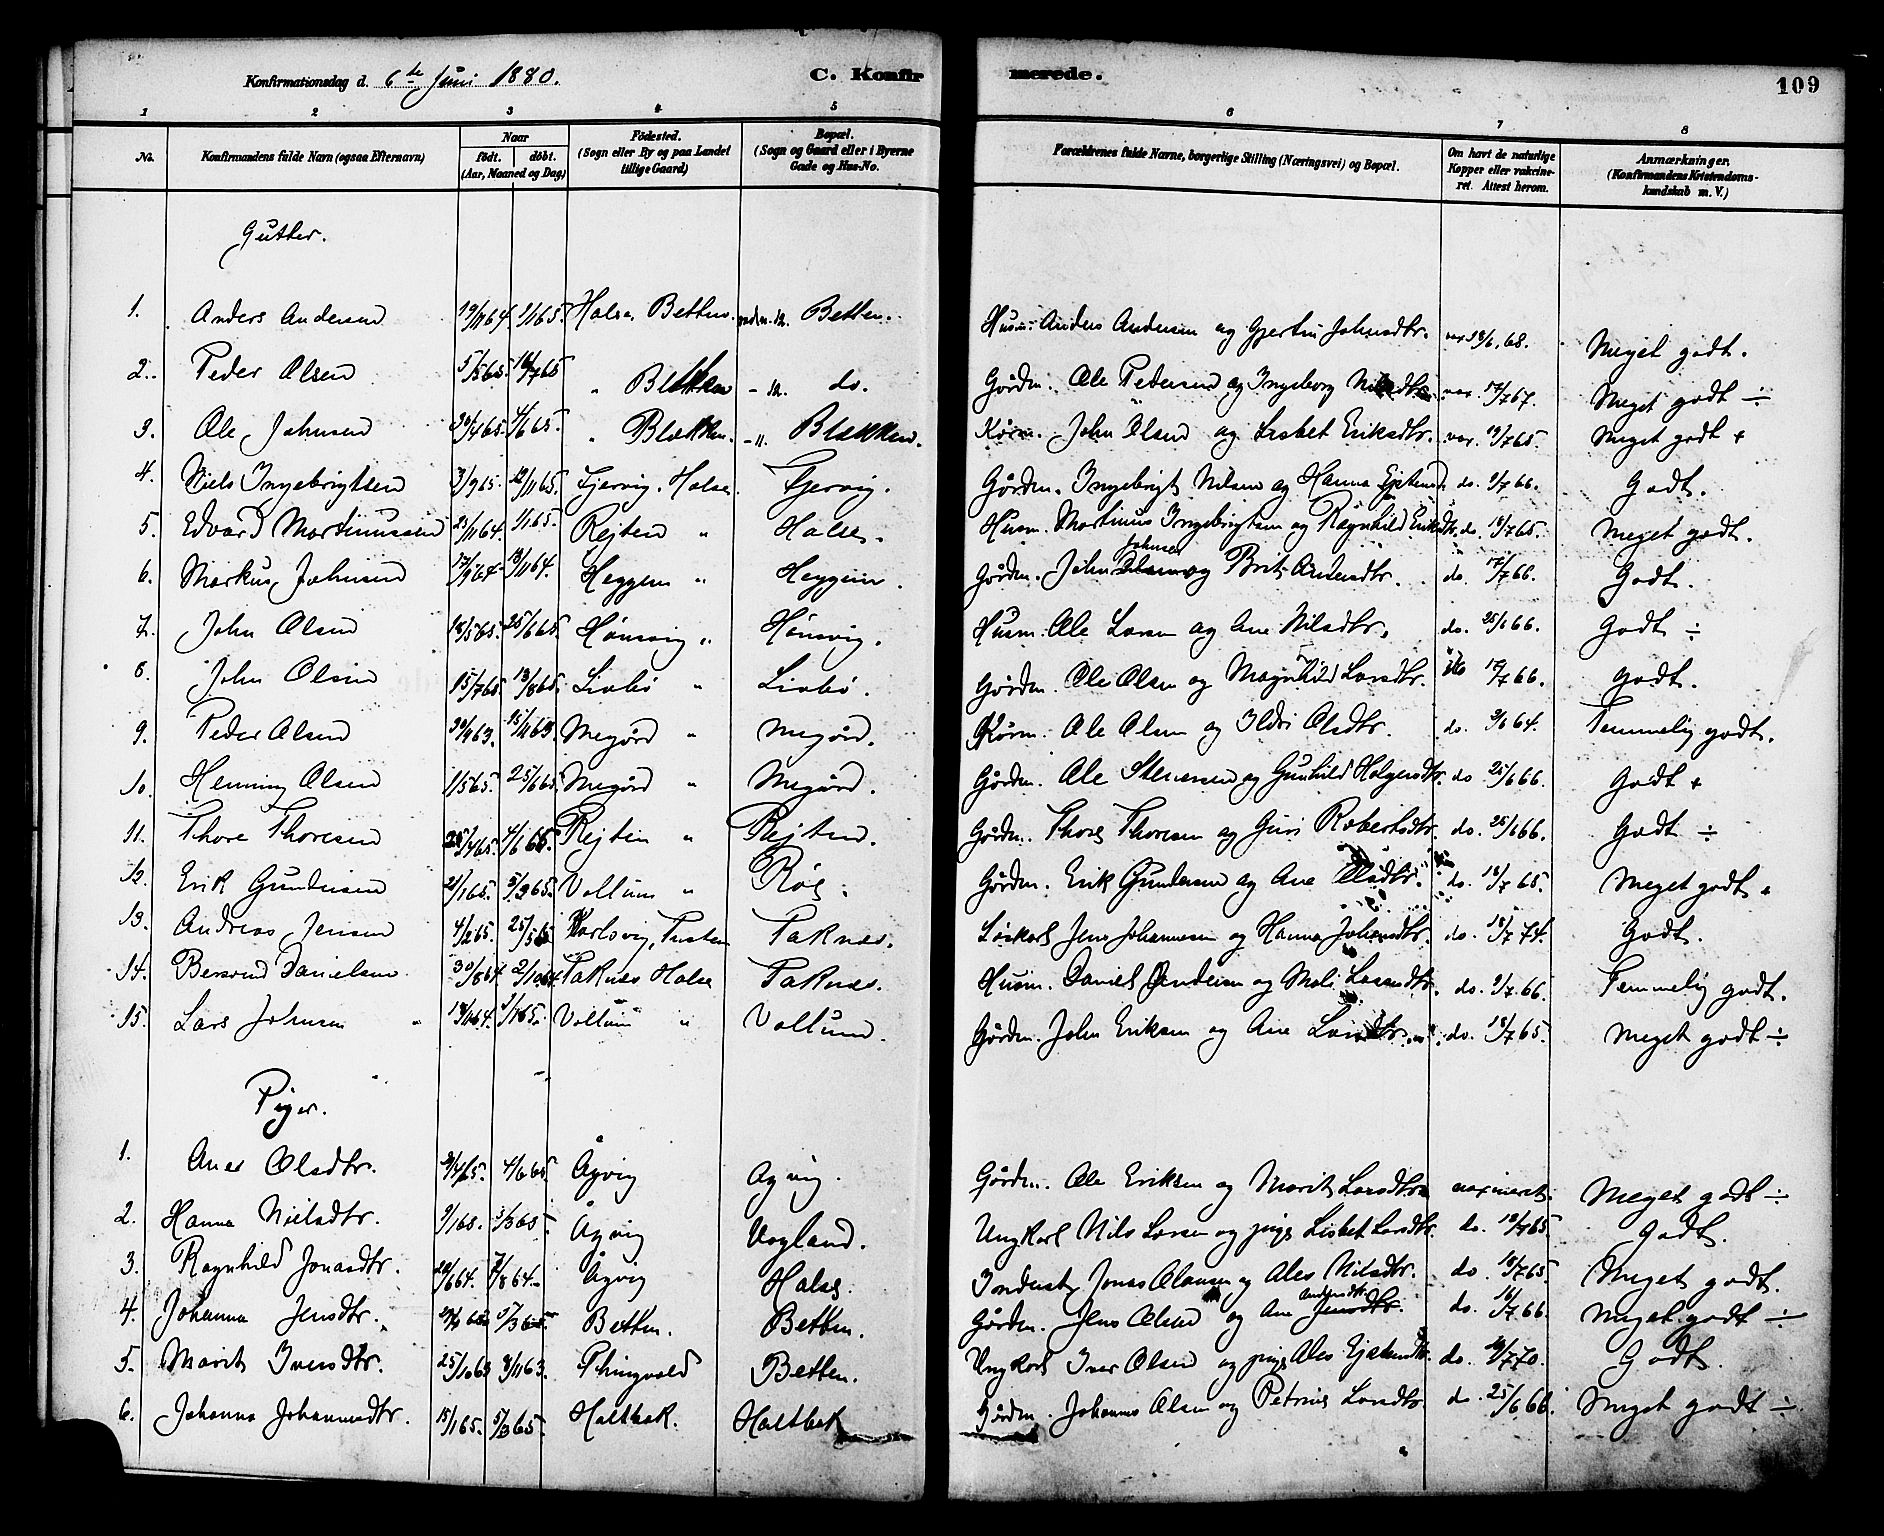 Konfirmationsdag d. 6te Juni 1880. C. Konfirmerede. 109
1 2 3 4 5 6 7 8
No. Konfirmandens fulde Navn (ogsaa Efternavn) Naar født. døbt. (Aar, Maaned og Dag) Fødested. (Sogn eller By og paa Landet tillige Gaard) Bopæl. (Sogn og Gaard eller i Byerne Gade og Hus-No. Forældrenes fulde Navne, borgerlige Stilling (Næringsvei) og Bopæl. Om havt de naturlige Kopper eller vaccineret. Attest herom. Anmærkninger. (Konfirmandens Kristendomskundskab m. V.)
Gutter.
1. Anders Andersen 1/1 65. Halsa, Betten Betten. Husm. Anders Andersen og Gjertru Johnsdtr. 18/6 68. Meget godt.
2. Peder Olsen 5/5 65. 16/7 65 " Betten do. Gårdm. Ole Pedersen og Ingeborg Nilsdtr. vac. 17/7 67. Meget godt ÷
3. Ole Johnsen 30/4 65. 4/6 65. " Blekken. Blekken. John Olsen og Lisbet Eriksdtr. vac. 19/7 65. Meget godt +
4. Niels Ingebrigtsen 3/9 65. 12/11 65. Fjervig. Halsa. Fjervig. Gårdm. Ingebrigt Nilsen og Hanna do. 9/7 66. Godt.
5. Edvard Martinussen 23/11 64. 1/1 65. Rejten " Halse. Husm. Martinus Ingebrigtsen og Ragnhild Eriksdtr. do. 18/7 65. Meget godt.
6. Markus Johnsen 17/9 64. 13/11 64. Heggem " Heggem. Gårdm. John Johnsen og Brit Andersdtr. do. 17/7 66. Godt.
7. John Olsen 18/5 65. 25/6 65. Hønsvig " Hønsvig. Husm. Ole Larsen og Ane Nilsdtr. do. 25/6 66. Godt ÷
8. John Olsen 15/7 65. 13/8 65. Livbø " Livbø. Gårdm. Ole Olsen og Magnhild Larsdtr. do 17/7 66. Godt.
9. Peder Olsen 15/11 63. Megård " Megård. Ole Olsen og Ildri Olsdtr. do. 64. Temmelig godt.
10. Henning Olsen 1/5 65. 25/6 65. Megård " Megård. Gårdm. Ole Stenersen og Gunhild Holgersdtr. do 25/6 66. Godt +
11. Thore Thoresen 25/4 65. 4/6 65. Rejten " Rejten. Gårdm. Thore Thoresen og Guri Robertsdtr. do. 25/6 66. Godt ÷
12. Erik Gundersen 21/1 65. 5/3 65. Vollum " Røe. Gårdm. Erik Gundersen og Ane Elsdtr. do. 18/7 65. Meget godt +
13. Andreas Jensen 4/2 65. 25/5 65 Karlsvig, Tusten Taknes. Løskarl Jens Johannesen og Hanna Johnsdtr. do. 18/7 74. Godt.
14. Bersvend Danielsen 30/8 64. 2/10 64. Taknes Halsa Taknes. Husm. Daniel og Mali Larsdtr. do. 9/7 66. Temmelig godt.
15. Lars Johnsen 1/1 65. Vollum " Vollum. Gårdm. John Eriksen og Ane Larsdtr. do. 18/7 65. Meget godt ÷
Piger.
1. Ane Olsdtr. 4/6 65. Ågvig Agvig. Gårdm. Ole Eriksen og Marit Larsdtr. vaxineret. Meget godt ÷
2. Hanna Nielsdtr. 9/1 65. 5/3 65 Ågvig Vagland. Ungkarl Nils Larsen og pige Lisbet Larsdtr. do. 18/7 65. Godt.
3. Ragnhild Jonasdtr. 7/8 64. Ågvig Halse. Inderst Jonas Olausen og Ales Nilsdtr. do. 18/7 65. Meget godt.
4. Johanna Jensdtr. 5/3 65. Betten. Betten. Gårdm. Jens Olsen og Ane Andersdtr. Jensdtr. do. 16/7 66. Meget godt ÷
5. Marit Iversdtr. 25/10 63 8/11 63. Thingvold Betten. Ungkarl Iver Olsen og pige Ales do. /7 70. Godt.
6. Johanna Johannesdtr. 15/1 65. 5/3 65. Haltbak. Haltbak Gårdm. Johannes Olsen og Petrine Larsdtr. do 25/6 66. Meget godt ÷